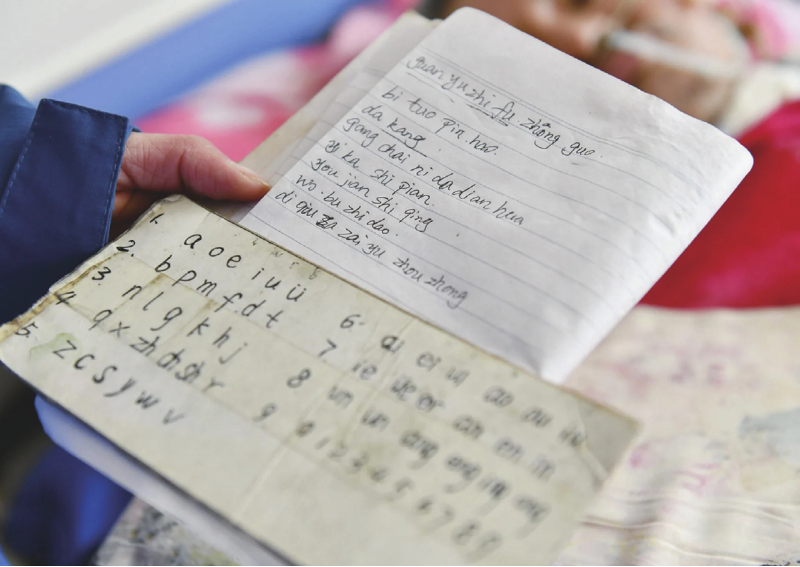 guan yu zhi fu zhōng guo.
bi tuo pin hao.
da kang
gang chai ni da dian hua
ka shi pian.
you jian shi qing
wo bu zhi dao.
di qiu zai yu zhou zhong
1. a o e i u ü
2. b p m f d t
3. n l g k h j
4. q x zh ch sh r
5. z c s y w v
6. ai ei ui ao ou iu
7 ie üe er an en in
8 un ün ang eng ing ong
9 0 1 2 3 4 5 6 7 8 9